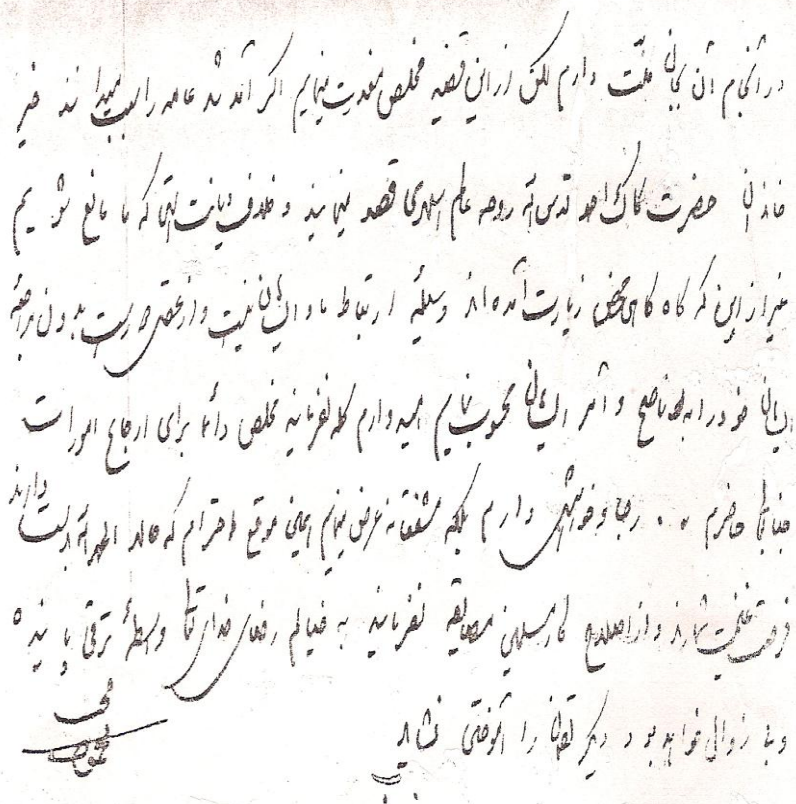 در انجام آن بجان منّت دارم لکن از این قضیه مخلص معذرت مینمایم اگر آمد شد عامه را سبب میدانند غیر
خاندان حضرت کاک احمد قدس الله روحه عالم اسلامی قصد مینمایند و خلاف دیانت است که ما مانع شویم
غیر از این که گاه گاهی محض زیارت آمده‌اند وسیلهٔ ارتباط ما و ایشان نیست و از عقل دور است بدون مراجعهٔ
ایشان خود را ناصح و آمر ایشان محسوب نمایم امیدوارم گله نفرمایند مخلص دائما برای ارجاع امورات
جنابعالی حاضرم .. رجا و خواهش دارم بلکه مشفقانه عرض مینمایم اینچنین موقع با احترام که حالا الحمدلله بدست دارند
فرصت غنیمت شمارند و از اصلاح کار مسلمین مضایقه نفرمایند به خیالم رضای خدای تعالی وسیلهٔ ترقی پاینده
و بی زوال خواهد بود دیگر لقمان را آموختن نشاید